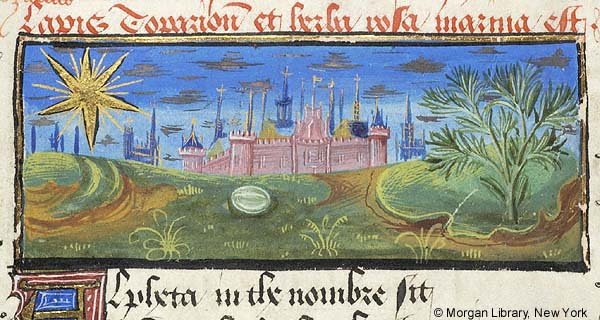 Lapis Topazion et herba rosa marina est
Alpheta in the nombre sit
© Morgan Library, New York